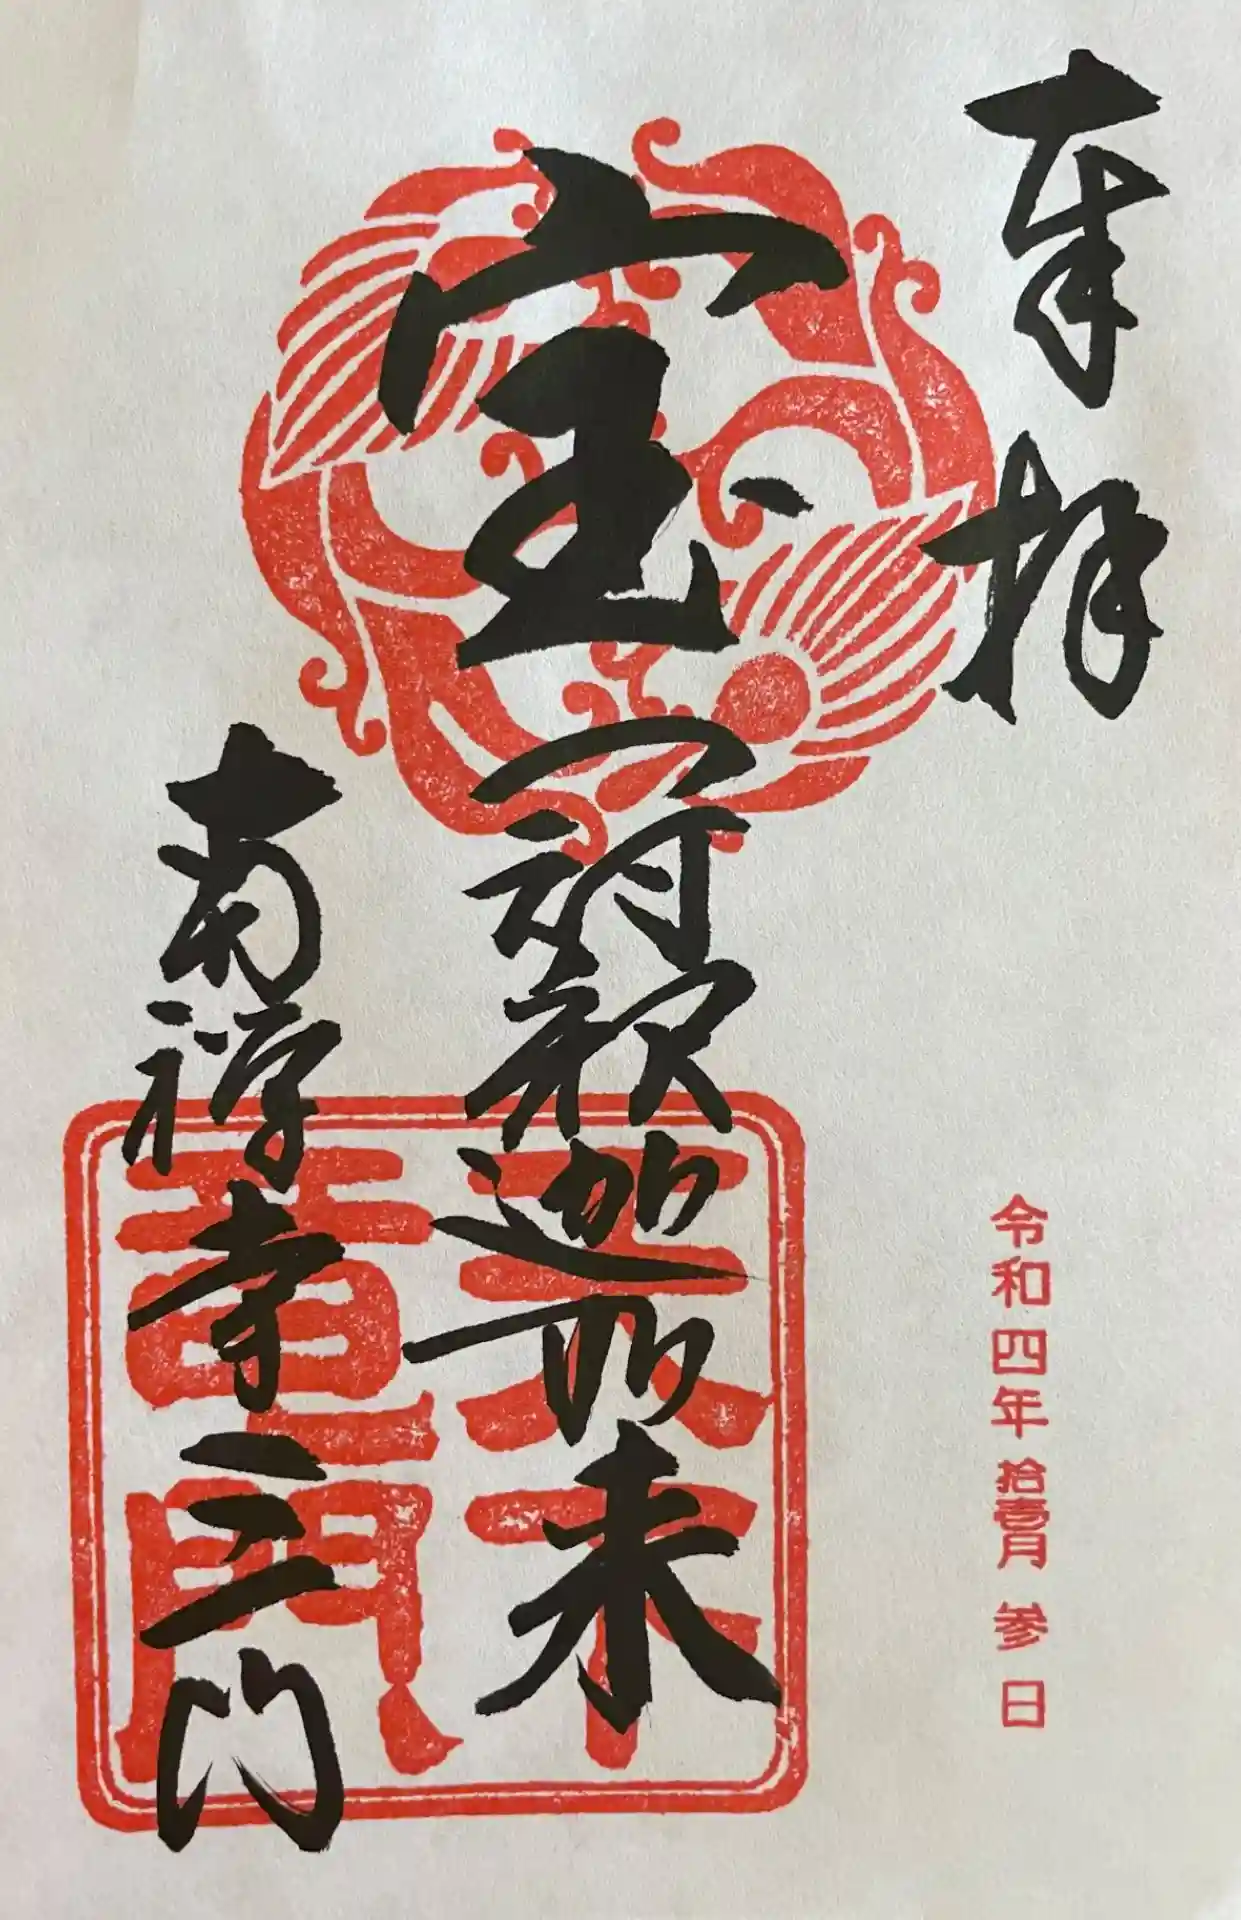 奉拝
令和四年拾壹月参日
宝冠釈迦如来
南禅寺三門
天下
竜門